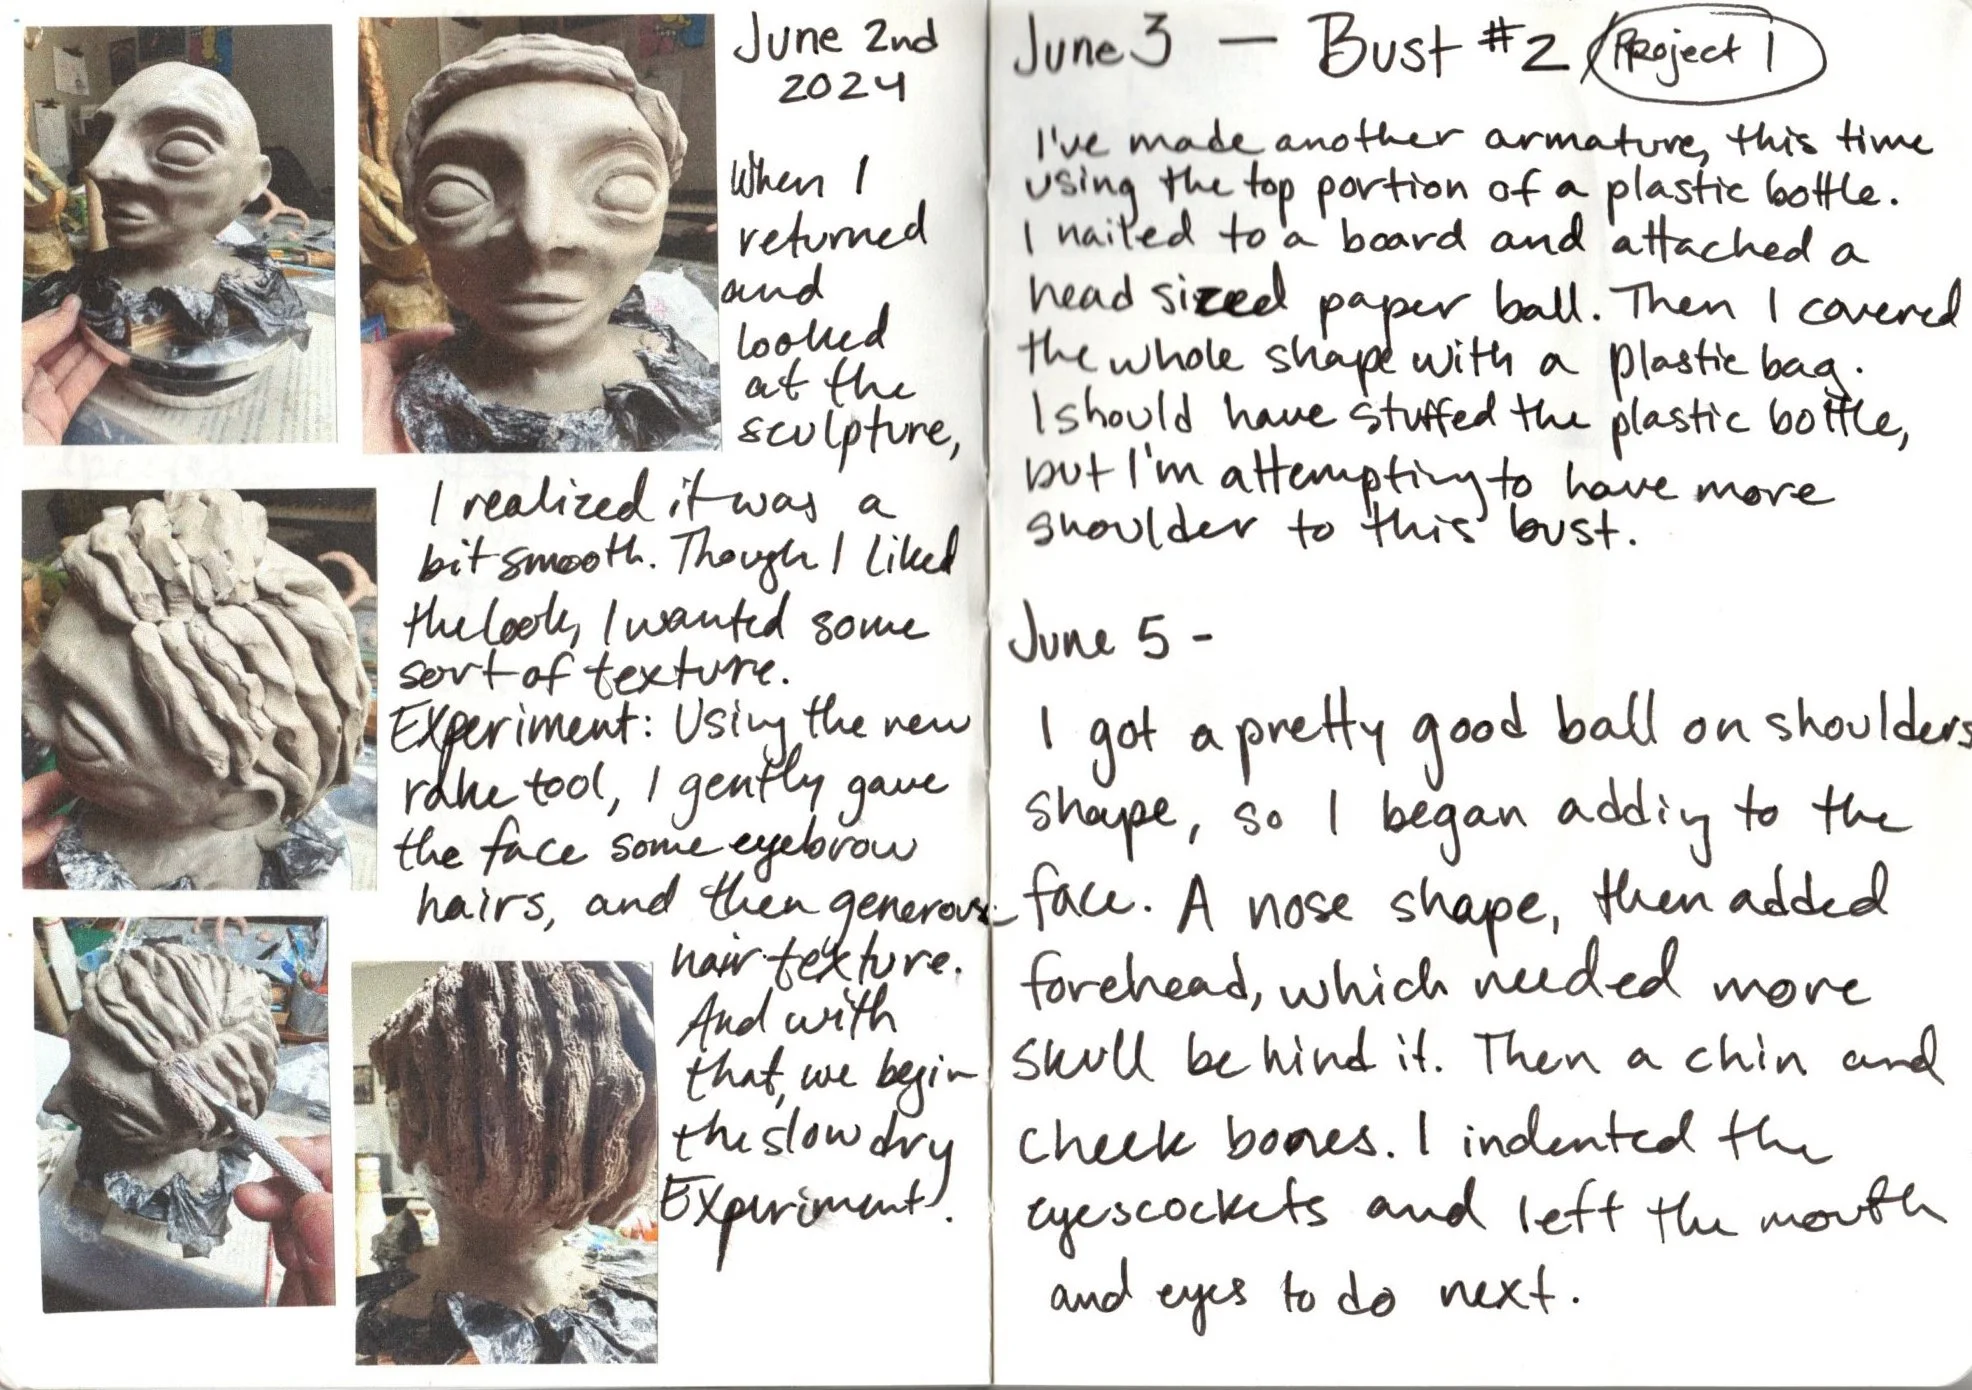 June 2nd
2024
When I
returned
and
looked
at the
sculpture,
I realized it was a
bit smooth. Though I liked
the look, I wanted some
sort of texture.
Experiment: Using the new
rake tool, I gently gave
the face some eyebrow
hairs, and then generous
hair texture.
And with
that, we begin
the slow dry
Experiment.
June 3 — Bust #2 Project 1
I've made another armature, this time
using the top portion of a plastic bottle.
I nailed to a board and attached a
head sized paper ball. Then I covered
the whole shape with a plastic bag.
I should have stuffed the plastic bottle,
but I'm attempting to have more
shoulder to this bust.
June 5 -
I got a pretty good ball on shoulders
shape, so I began adding to the
face. A nose shape, then added
forehead, which needed more
skull behind it. Then a chin and
cheek bones. I indented the
eyescockets and left the mouth
and eyes to do next.